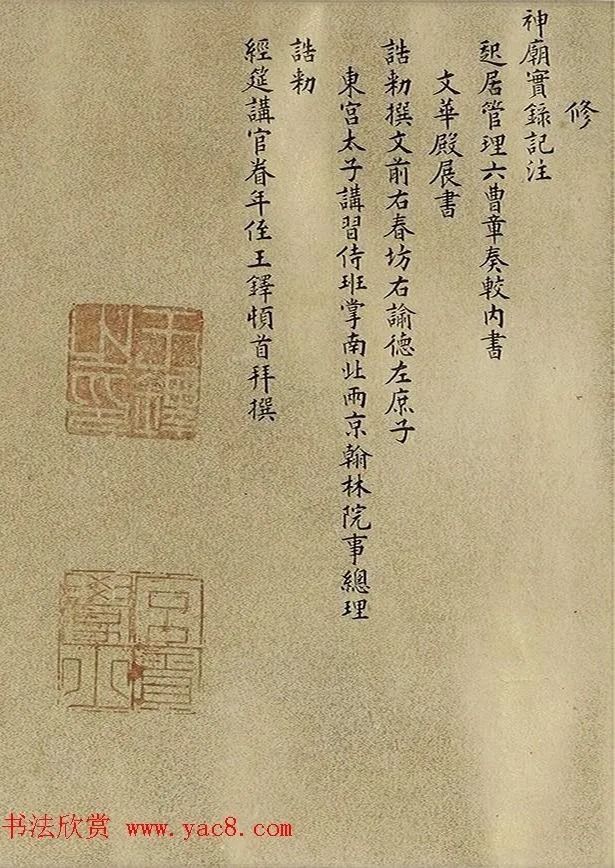 修
神廟實錄記注
起居管理六曹章奏較內書
文華殿展書
誥勑撰文前右春坊右諭德左庶子
東宮太子講習侍班掌南北兩京翰林院事總理
誥勑
經筵講官眷年侄王鐸頓首拜撰
王鐸之印
书法欣赏 www.yac8.com